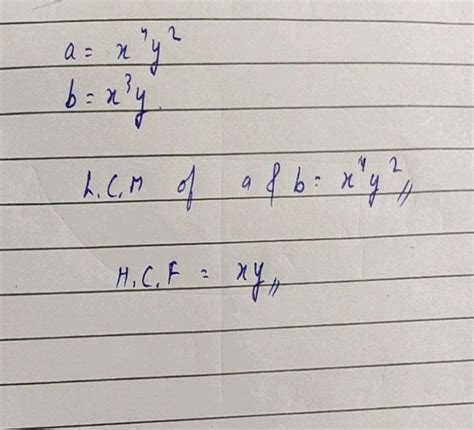 a = x⁴y²
b = x³y.
L.C.M of a & b = x⁴y²,,
H.C.F = xy,,